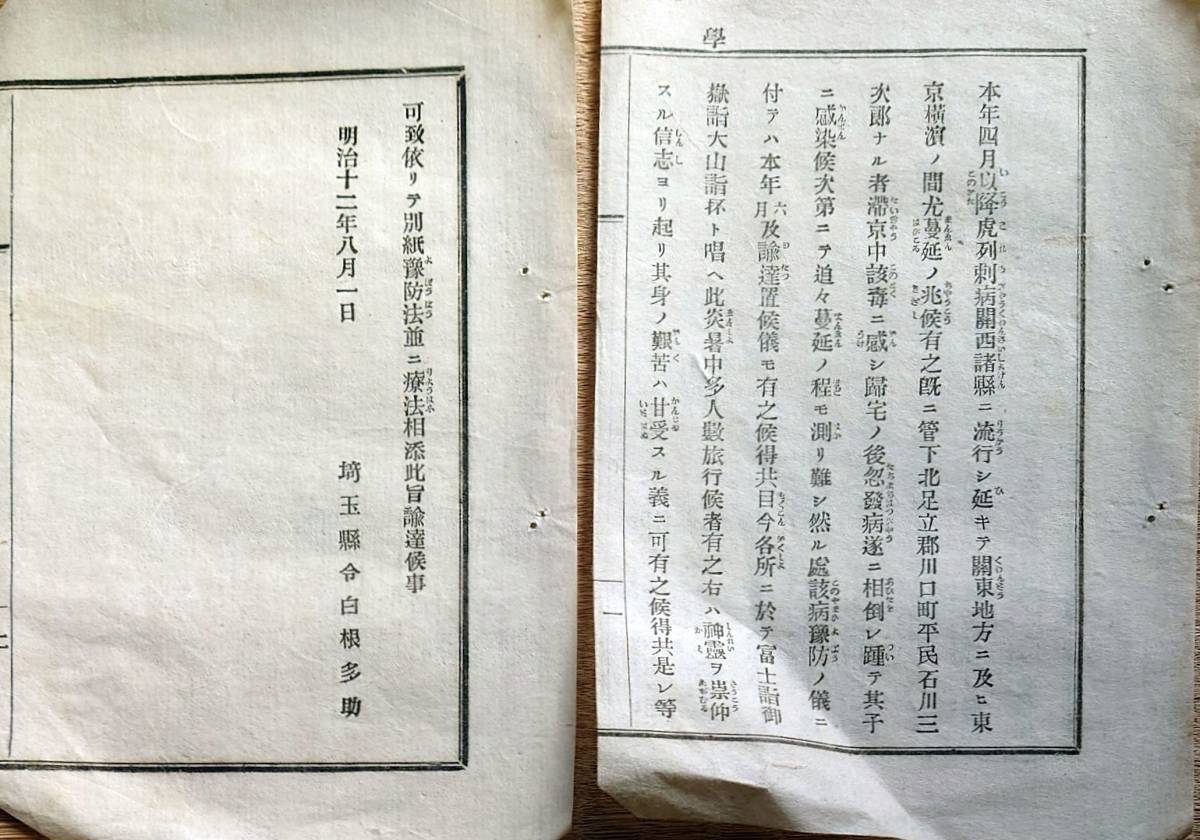 學
本年四月以降虎列剌病關西諸縣ニ流行シ延キテ關東地方ニ及ヒ東
京橫濱ノ間尤蔓延ノ兆候有之既ニ管下北足立郡川口町平民石川三
次郎ナル者滯京中該毒ニ感シ歸宅ノ後忽發病遂ニ相倒レ踵テ其子
ニ感染候次第ニテ追々蔓延ノ程モ測リ難シ然ル處該病豫防ノ儀ニ
付テハ本年六月及諭達置候儀モ有之候得共目今各所ニ於テ富士詣御
嶽詣大山詣抔ト唱ヘ此炎暑中多人數旅行候者有之右ハ神靈ヲ崇仰
スル信志ヨリ起リ其身ノ艱苦ハ甘受スル義ニ可有之候得共是レ等
一
可致依リテ別紙豫防法並ニ療法相添此旨諭達候事
明治十二年八月一日
埼玉縣令白根多助